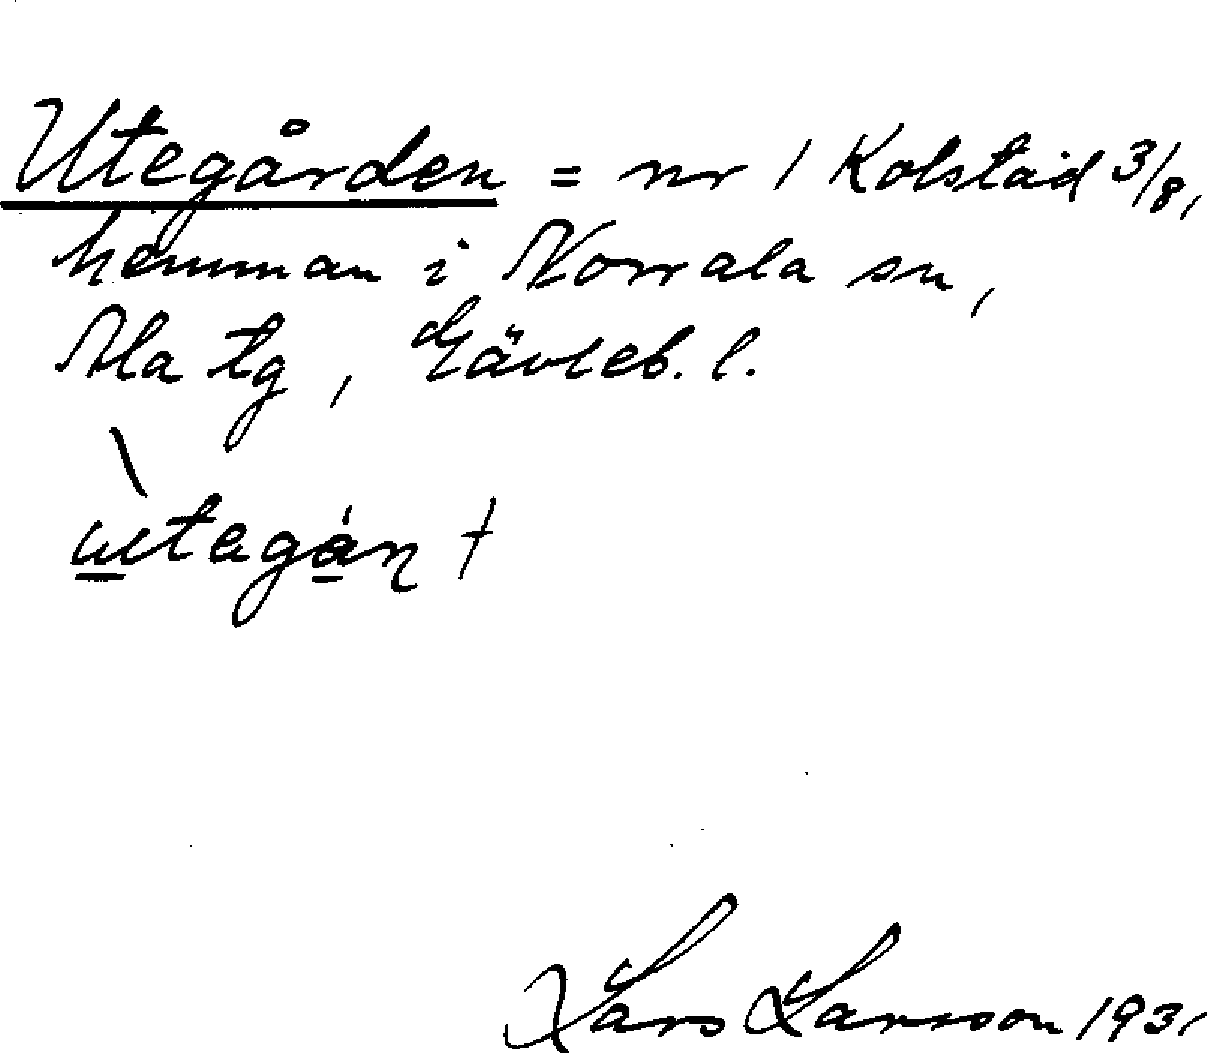 Utegården = nr 1 Kolstad 3/8,
hemman i Norrala sn,
Ala tg, Gävleb. l.
Lars Larsson 1931